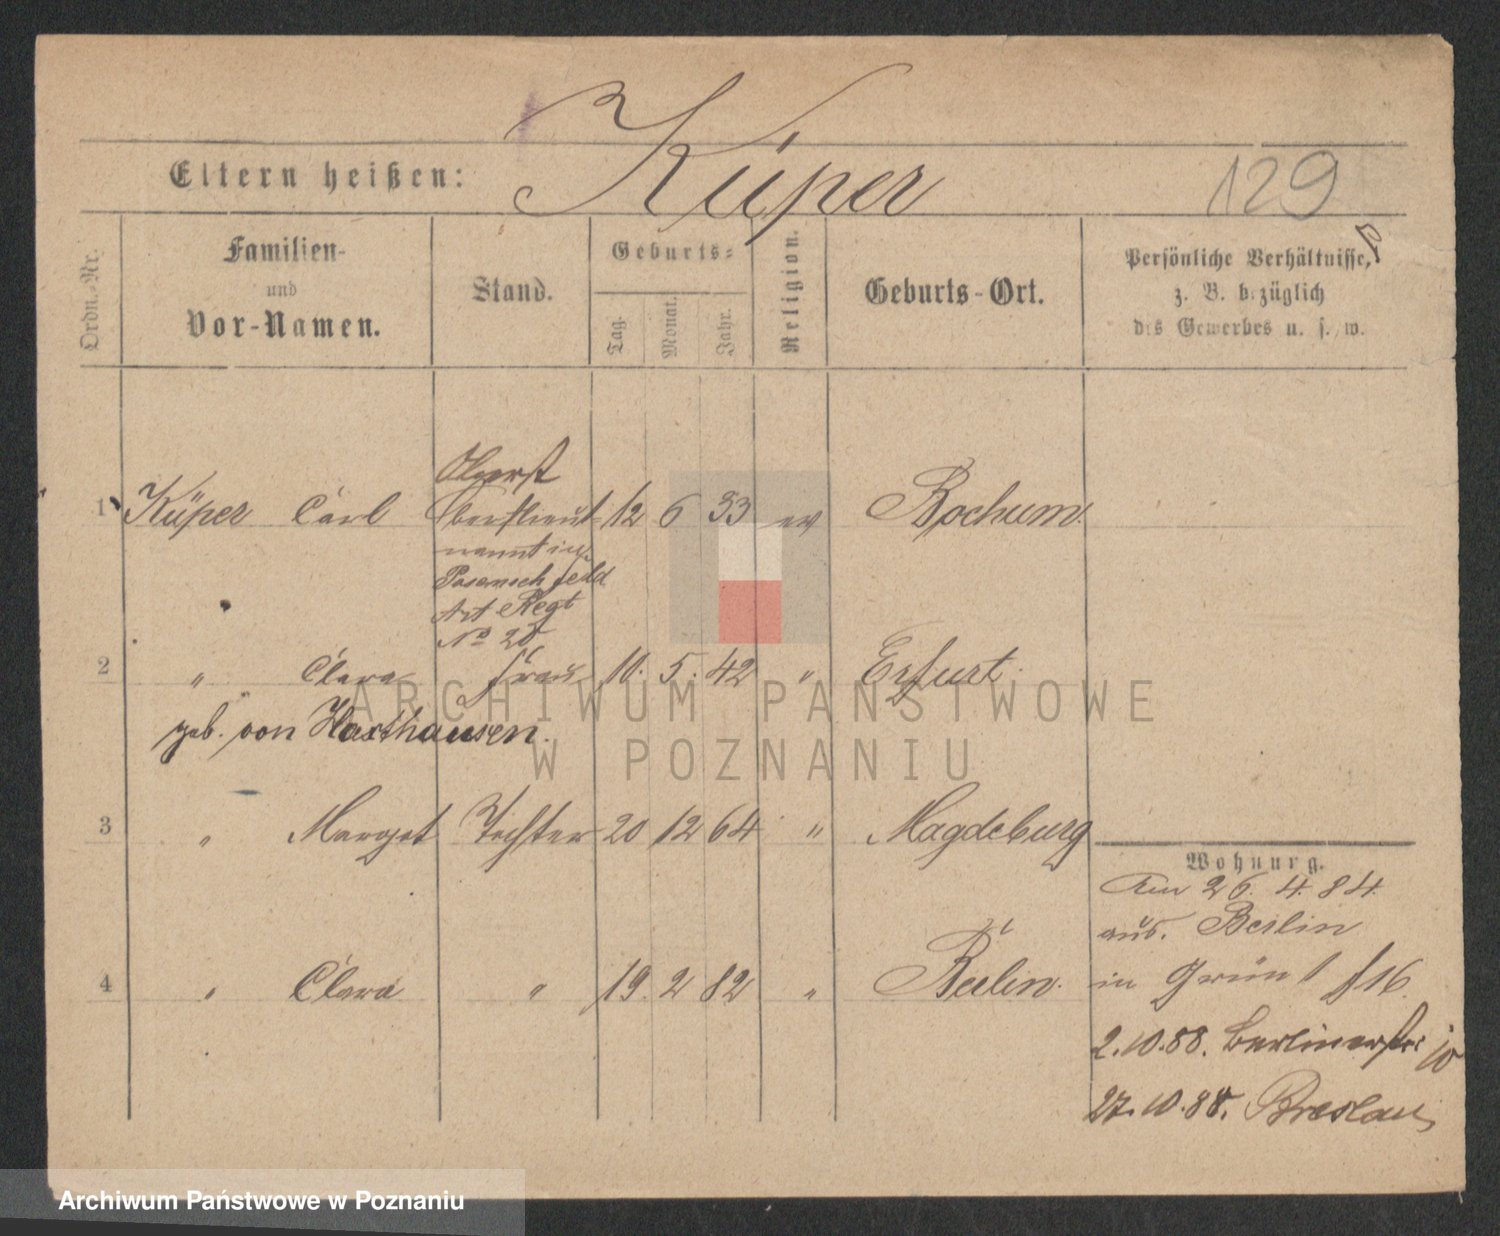 Küper
Eltern heißen:
129
Ordn.-Nr.
Familien-
und
Vor-Namen.
Stand.
Geburts-
Tag.
Monat.
Jahr.
Religion.
Geburts-Ort.
Persönliche Verhältnisse,
z. B. bezüglich
des Gewerbes u. s. w.
Oberst
1 Küper Carl Oberstlieut- 12 6 33 ev Bochum.
nannt im
Posensch feld
Art Regt
No 20
2 " Clara Frau 10. 5. 42 " Erfurt.
geb. von Haxthausen.
3 " Margot Tochter 20 12 64 " Magdeburg
4 " Clara " 19. 2 82 " Berlin.
Wohnung.
Am 26. 4. 84.
aus. Berlin
in Grün 16.
2.10.88. Berlinerstr. 10
27.10.88. Breslau
ARCHIWUM PAŃSTWOWE
W POZNANIU
Archiwum Państwowe w Poznaniu